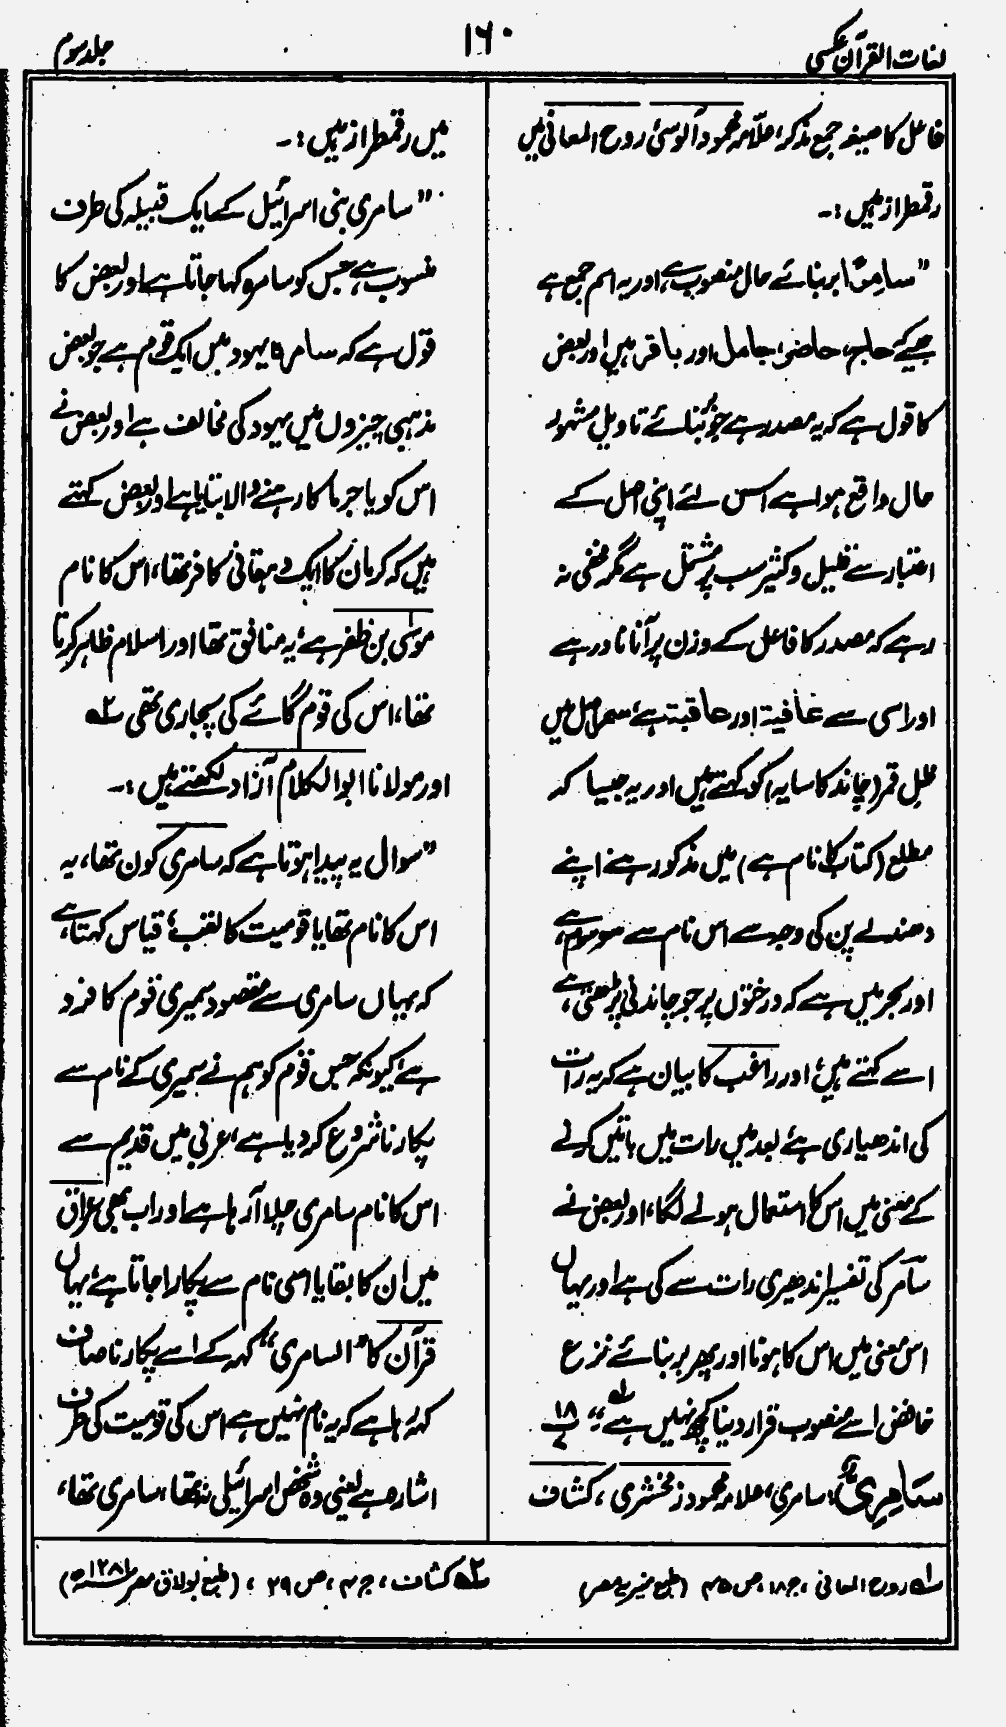 لغات القرآن عکسی
۱۶۰
جلد سوم
فاعل کا صیغہ جمع مذکر، علّامہ محمود آلوسی روح المعانی میں
رقمطراز ہیں :۔
"سامرًا بر بنائے حال منصوب ہے، اور یہ اسم جمع ہے
جیسے کہ حاج، حاضر، جامل اور باقر ہیں اور بعض
کا قول ہے کہ یہ مصدر ہے جو بر بنائے تاویل مشہور
حال واقع ہوا ہے اس لئے اپنی اصل کے
اعتبار سے قلیل و کثیر سب پر مشتمل ہے مگر مخفی نہ
رہے کہ مصدر کا فاعل کے وزن پر آنا نادر ہے
اور اسی سے عافیة اور عاقبة ہے، سمر اصل میں
ظل قمر (چاند کا سایہ) کو کہتے ہیں اور یہ جیسا کہ
مطلع (کتاب کا نام ہے) میں مذکور ہے اپنے
دھندلے پن کی وجہ سے اس نام سے موسوم ہے،
اور بحر میں ہے کہ درختوں پر جو چاندنی پڑتی ہے،
اسے کہتے ہیں، اور راغب کا بیان ہے کہ یہ رات
کی اندھیاری ہے، بعد میں رات میں باتیں کرنے
کے معنی میں اس کا استعمال ہونے لگا، اور بعض نے
سامر کی تفسیر اندھیری رات سے کی ہے اور یہاں
اس معنی میں اس کا ہونا اور پھر بر بنائے نزع
خافض اسے منصوب قرار دینا کچھ نہیں ہے"، لہ ۱۸
سَامِرِیُّ: سامری، علامہ محمود زمخشری، کشاف
میں رقمطراز ہیں :۔
"سامری بنی اسرائیل کے ایک قبیلہ کی طرف
منسوب ہے جس کو سامرہ کہا جاتا ہے اور بعض کا
قول ہے کہ سامرہ یہود میں ایک قوم ہے جو بعض
مذہبی چیزوں میں یہود کی مخالف ہے اور بعض نے
اس کو باجرما کا رہنے والا بتایا ہے اور بعض کہتے
ہیں کہ کرمان کا ایک دہقانی کافر تھا، اس کا نام
موسی بن ظفر ہے، یہ منافق تھا اور اسلام ظاہر کرتا
تھا، اس کی قوم گائے کی پجاری تھی ۲ہ
اور مولانا ابوالکلام آزاد لکھتے ہیں :۔
"سوال یہ پیدا ہوتا ہے کہ سامری کون تھا، یہ
اس کا نام تھا یا قومیت کا لقب؛ قیاس کہتا ہے،
کہ یہاں سامری سے مقصود سمیری قوم کا فرد
ہے؛ کیونکہ جس قوم کو ہم نے سمیری کے نام سے
پکارنا شروع کر دیا ہے، عربی میں قدیم سے
اس کا نام سامری چلا آ رہا ہے اور اب بھی عراق
میں ان کا بقایا اسی نام سے پکارا جاتا ہے، یہاں
قرآن کا "السامری" کہہ کے اسے پکارنا صاف
کہہ رہا ہے کہ یہ نام نہیں ہے اس کی قومیت کی طرف
اشارہ ہے یعنی وہ شخص اسرائیلی نہ تھا، سامری تھا،
۱ہ روح المعانی، ج ۱۸، ص ۴۵ (طبع منیریہ مصر)
۲ہ کشاف، ج ۳، ص ۲۹، (طبع بولاق مصر ۱۲۸۱ھ)